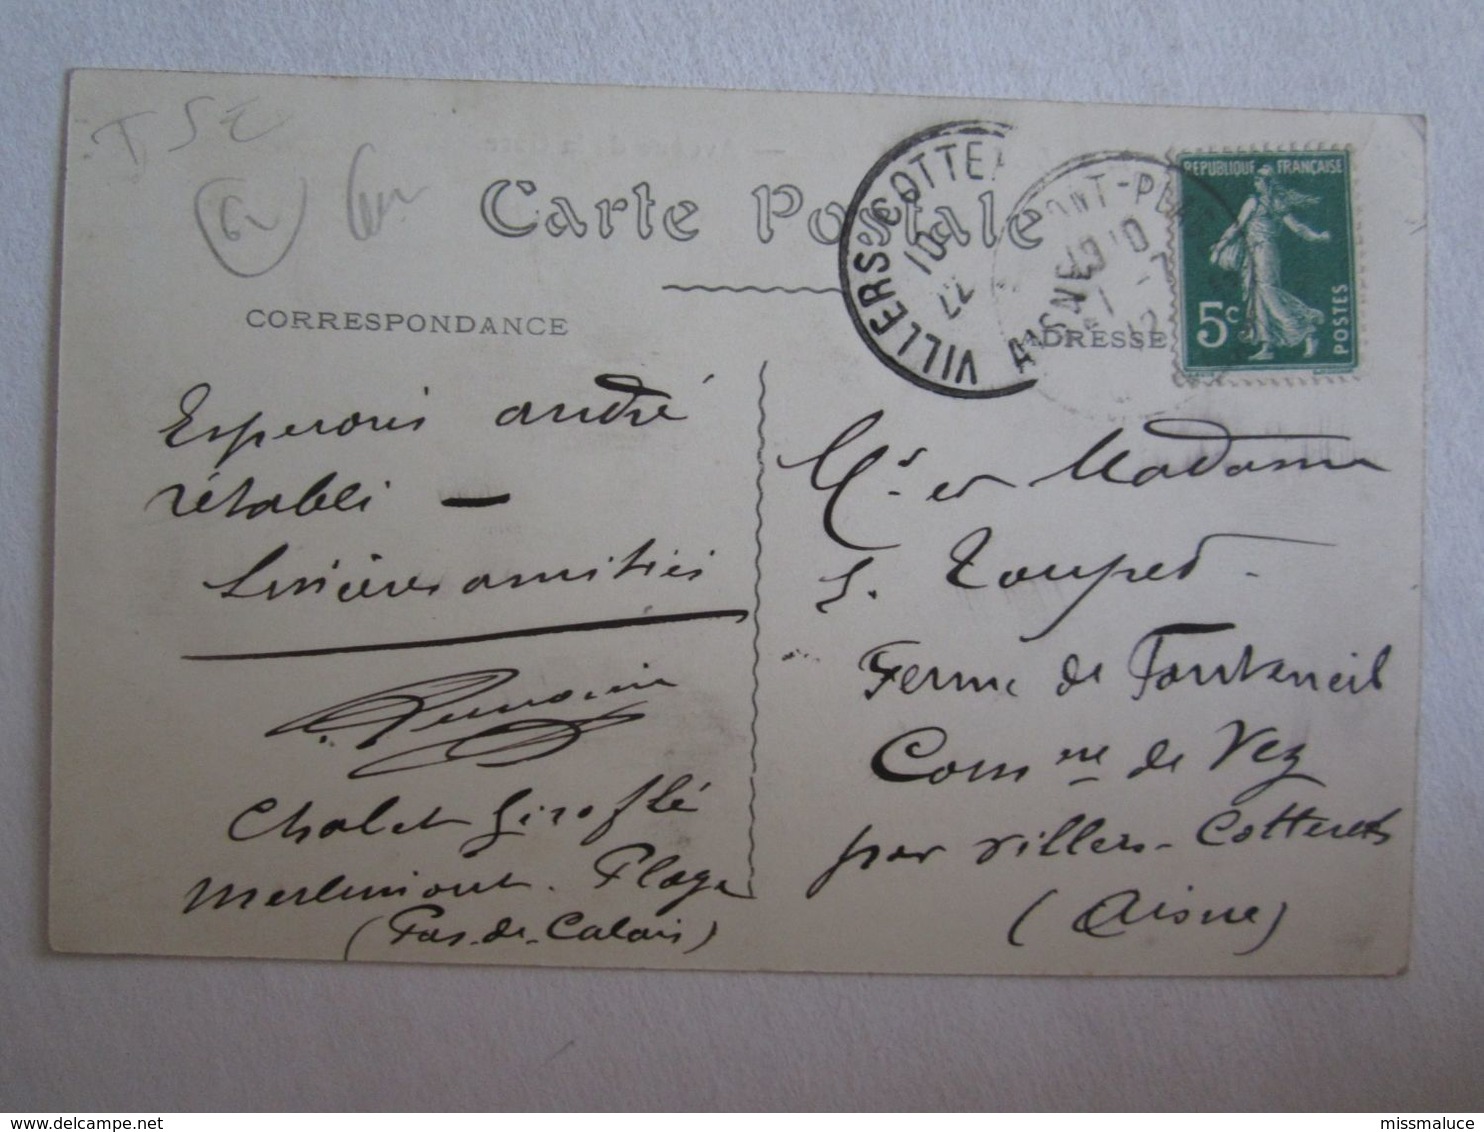 TSE
62
Carte Postale
CORRESPONDANCE
ADRESSE
VILLERS COTTE
AISNE
RÉPUBLIQUE FRANÇAISE
5c
POSTES
Esperons andré
rétabli —
Sincères amitiés
Chalet Giroflé
Merlimont. Plage
(Pas-de-Calais)
Mr. et Madame
S. Toupet
Ferme de Fonteneil
Comne de Vez
par Villers-Cotterets
(Aisne)
missmaluce